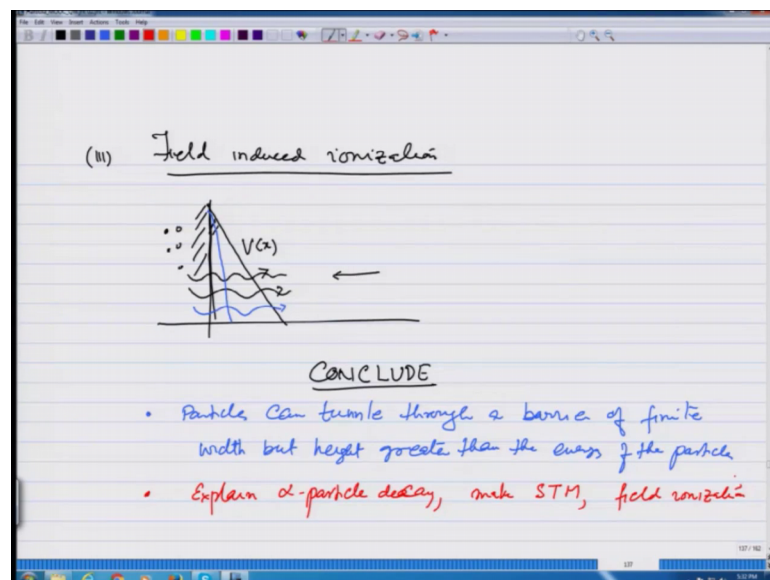 File Edit View Insert Actions Tools Help
(III) Field induced ionization
V(x)
CONCLUDE
• Particles can tunnle through a barrier of finite
width but height greater than the energy of the particle
• Explain α-particle decay, make STM, field ionization
137 / 162
137
5:32 PM